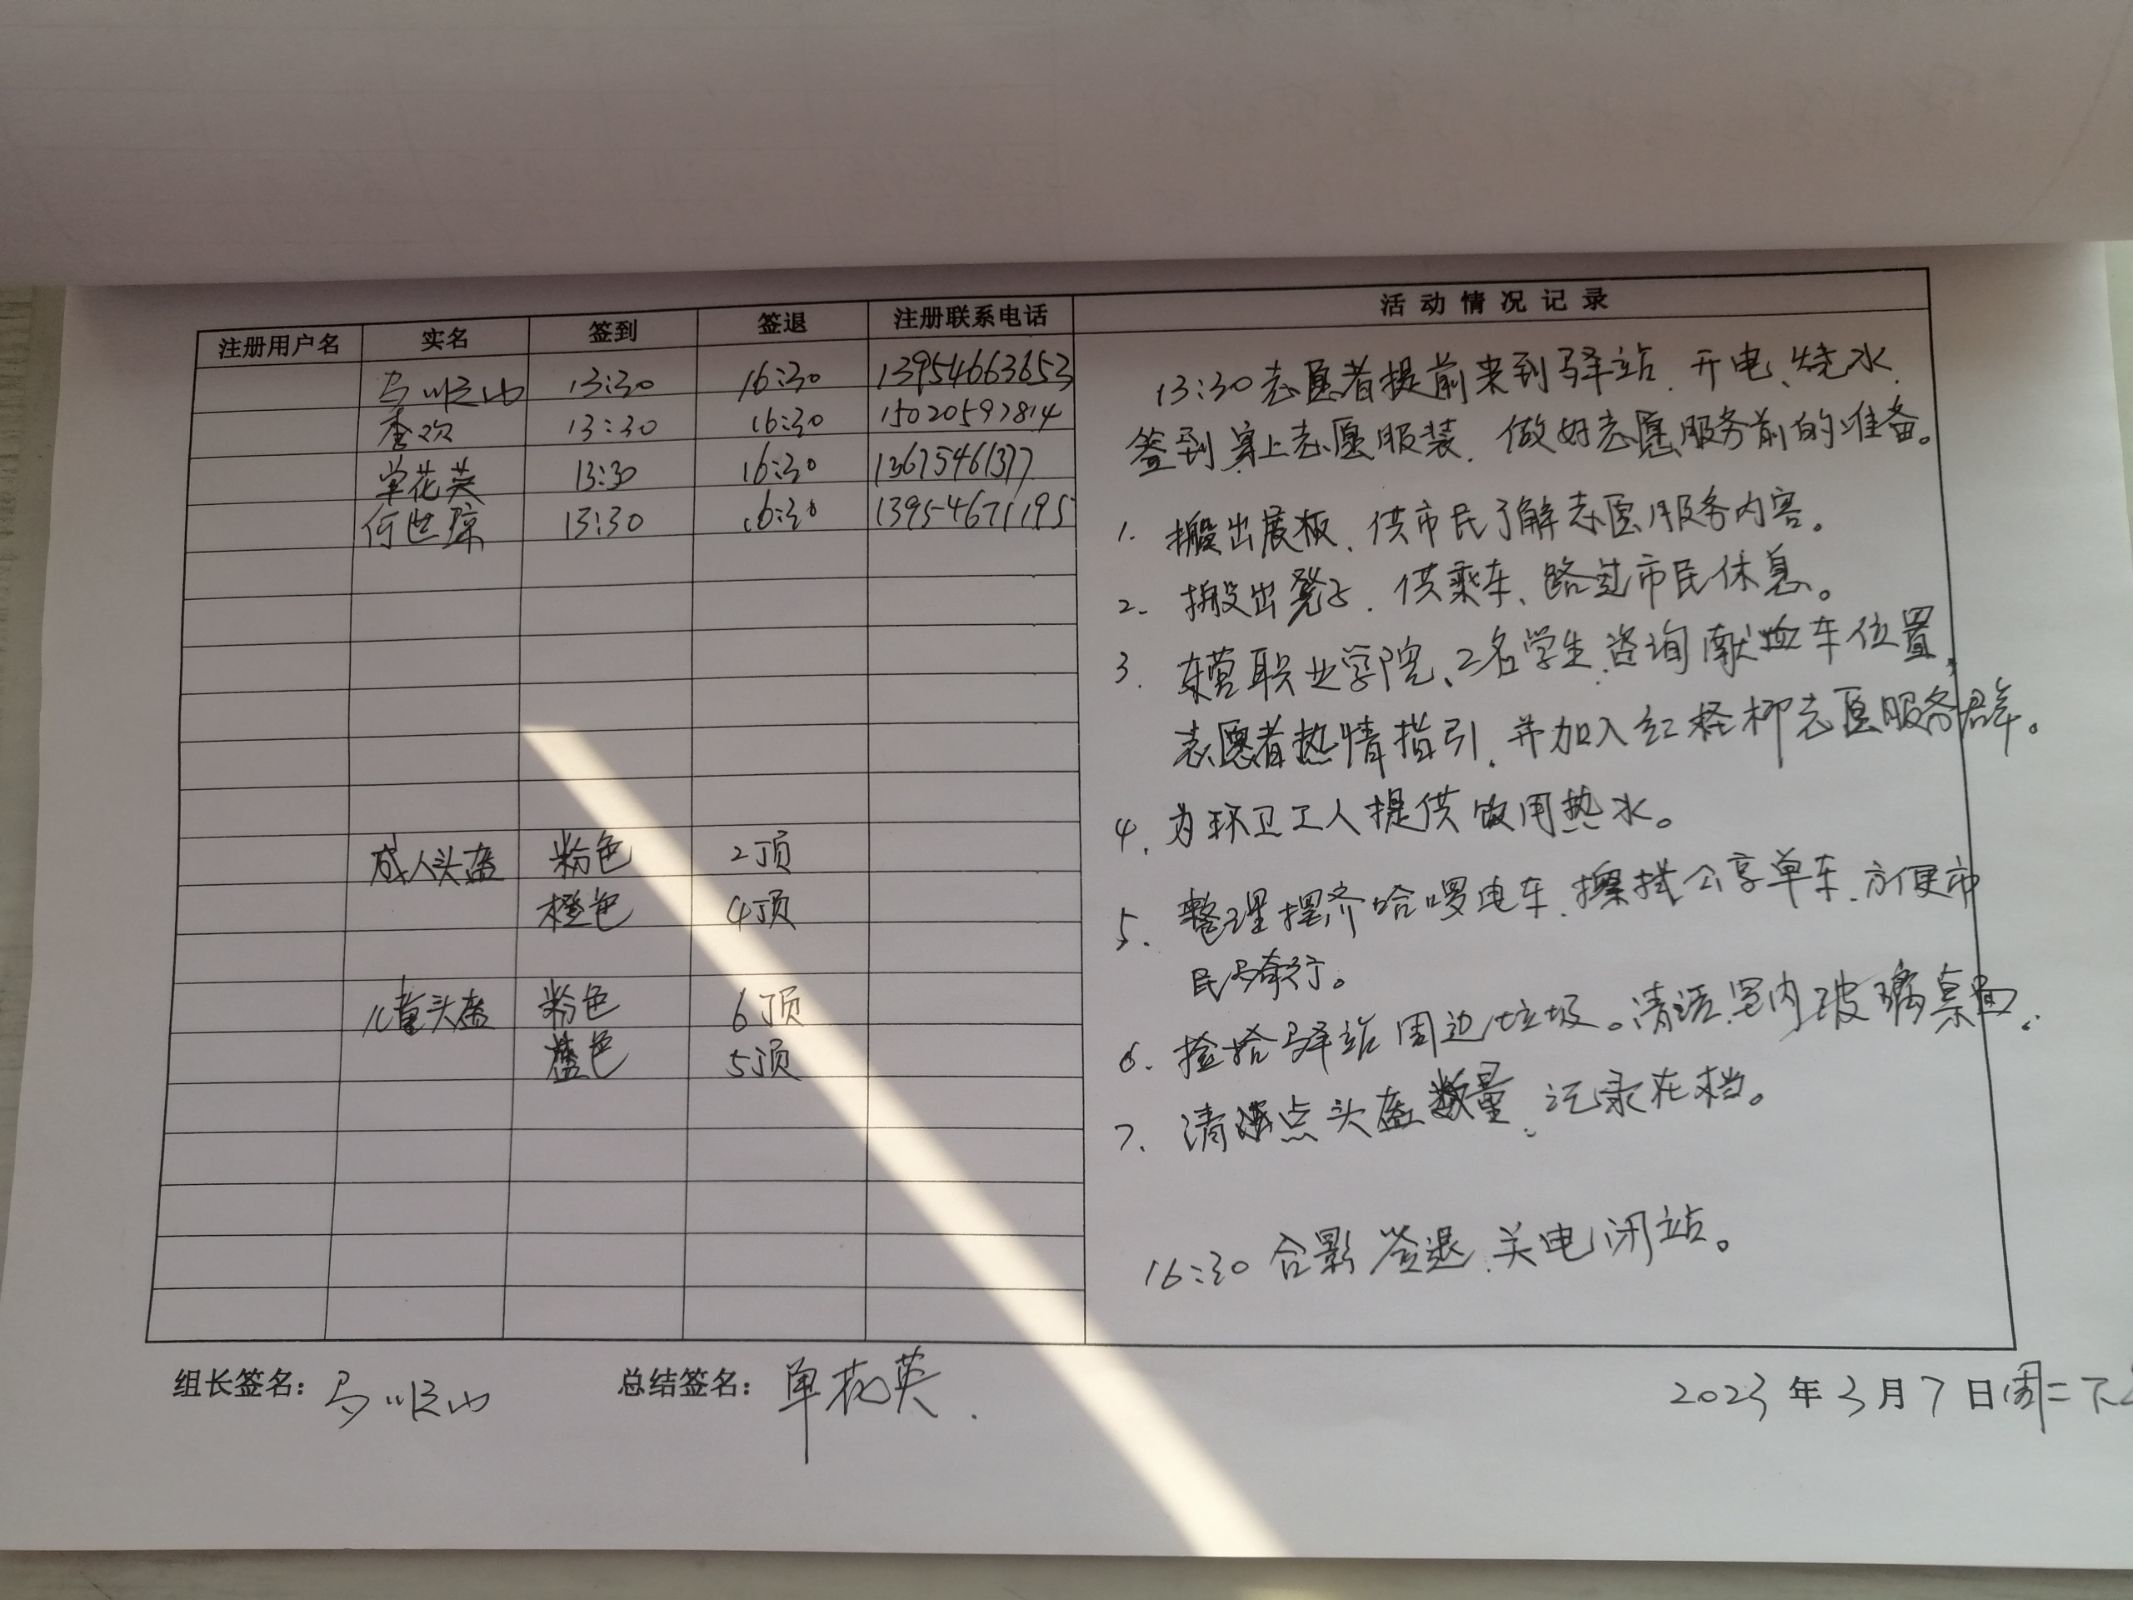 注册用户名 实名 签到 签退 注册联系电话 活动情况记录
马顺山 13:30 16:30 13954663653
李欢 13:30 16:30 15020597814
单花英 13:30 16:30 13675461377
何世琼 13:30 16:30 13954671195
成人头盔 粉色 2顶
橙色 4顶
儿童头盔 粉色 6顶
蓝色 5顶
13:30志愿者提前来到驿站.开电、烧水.
签到穿上志愿服装.做好志愿服务前的准备。
1.搬出展板、供市民了解志愿服务内容。
2.搬出凳子.供乘车、路过市民休息。
3.东营职业学院、2名学生咨询献血车位置,
志愿者热情指引.并加入红柽柳志愿服务群。
4.为环卫工人提供饮用热水。
5.整理摆齐哈啰电车.擦拭公享单车.方便市
民骑行。
6.捡拾驿站周边垃圾。清洁室内玻璃桌面.
7.清点头盔数量、记录在档。
16:30合影 签退.关电闭站。
组长签名：马顺山 总结签名：单花英. 2023年3月7日周二下